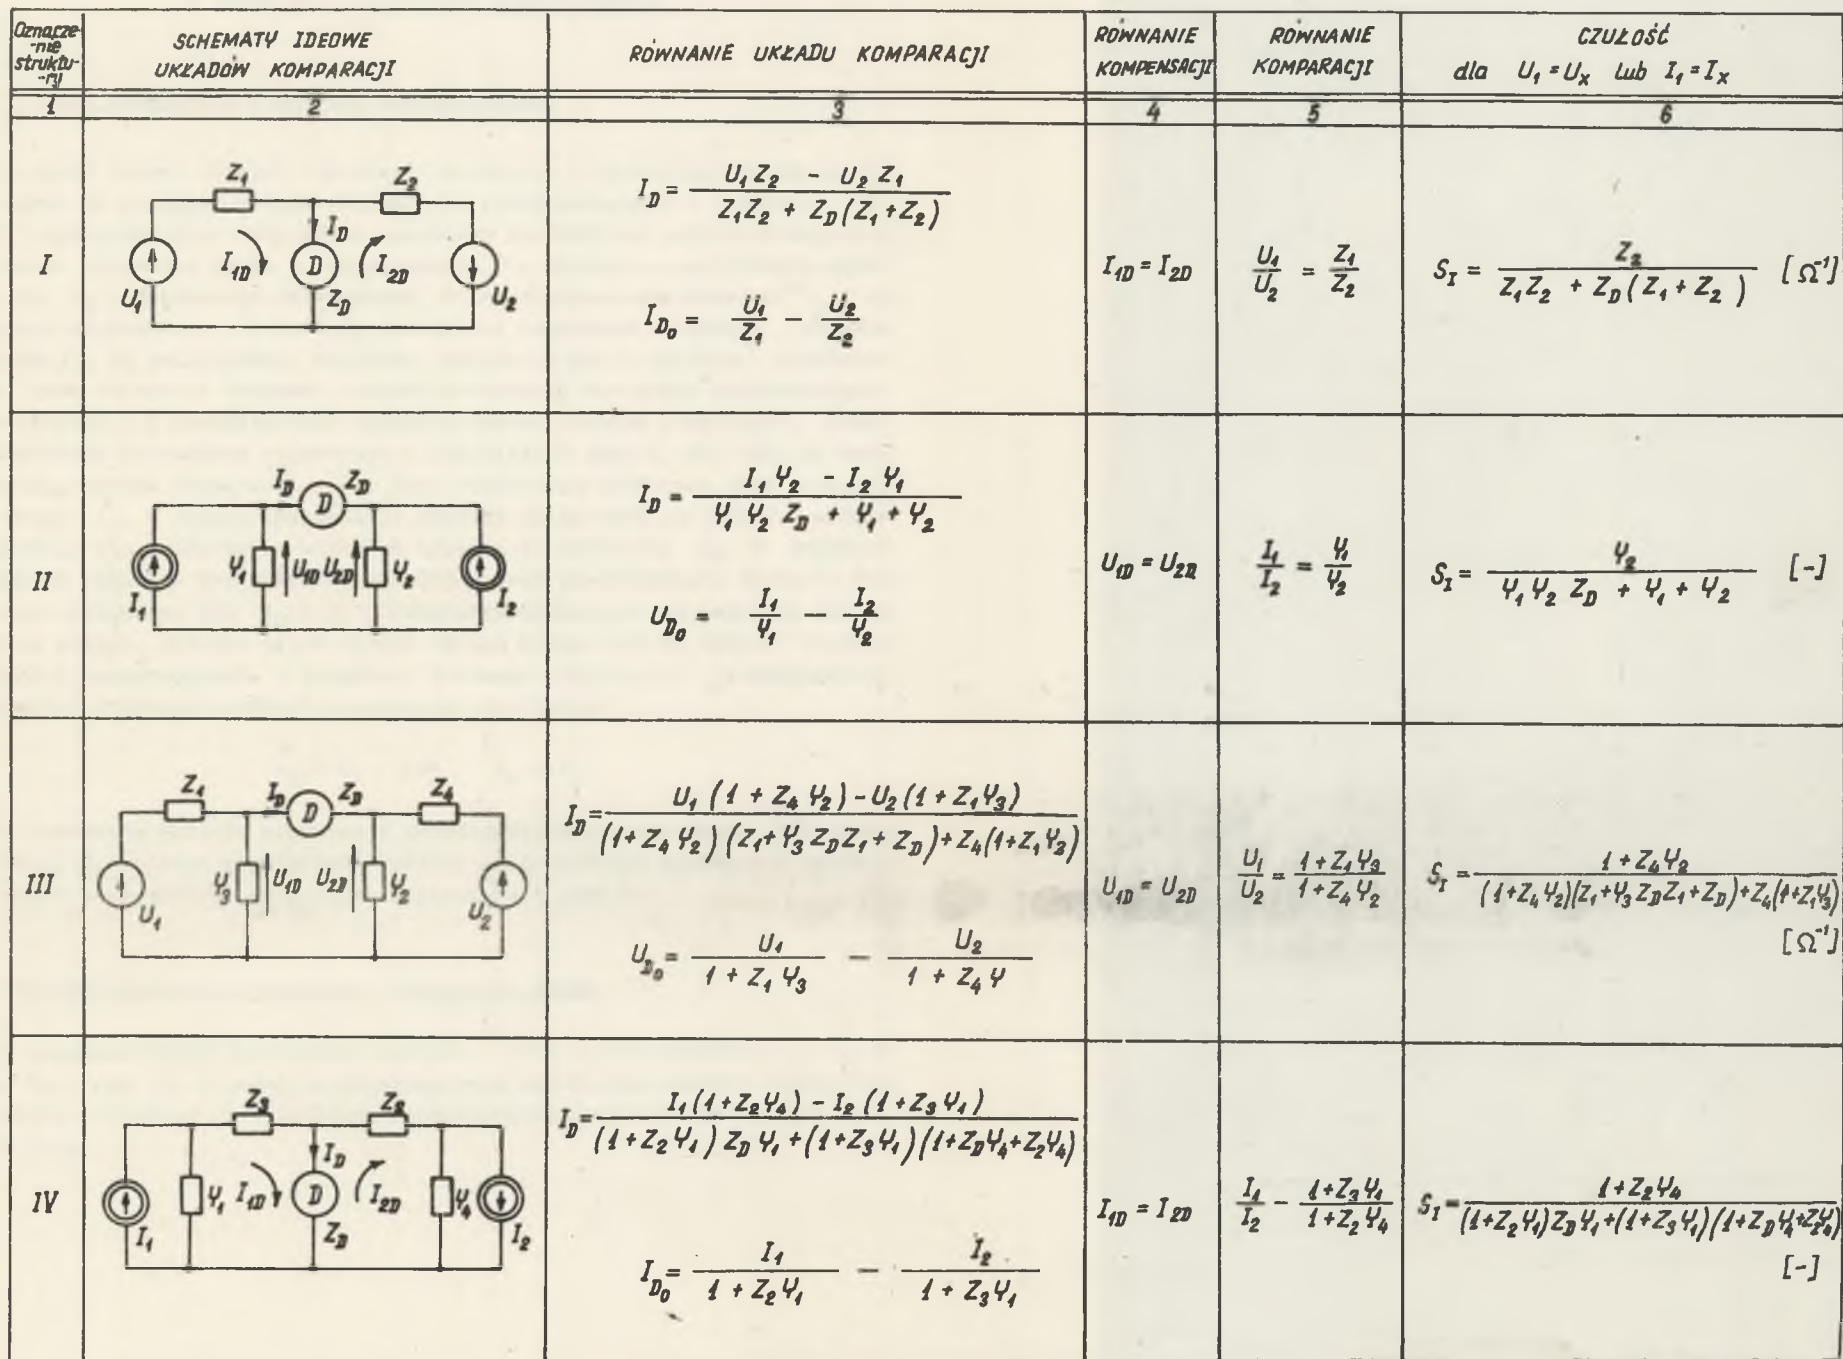 Oznacze-
-nie
struktu-
-ry
SCHEMATY IDEOWE
UKŁADÓW KOMPARACJI
RÓWNANIE UKŁADU KOMPARACJI
RÓWNANIE
KOMPENSACJI
RÓWNANIE
KOMPARACJI
CZUŁOŚĆ
dla U₁ = Uₓ lub I₁ = Iₓ
1 2 3 4 5 6
I
Z₁ Z₂
I_D
I_1D D I_2D
U₁ Z_D U₂
I_D = (U₁ Z₂ - U₂ Z₁) / (Z₁Z₂ + Z_D(Z₁+Z₂))
I_D₀ = U₁/Z₁ - U₂/Z₂
I_1D = I_2D
U₁/U₂ = Z₁/Z₂
S_I = Z₂ / (Z₁Z₂ + Z_D(Z₁+Z₂)) [Ω⁻¹]
II
I_D Z_D
D
Y₁ U_1D U_2D Y₂
I₁ I₂
I_D = (I₁ Y₂ - I₂ Y₁) / (Y₁ Y₂ Z_D + Y₁ + Y₂)
U_D₀ = I₁/Y₁ - I₂/Y₂
U_1D = U_2D
I₁/I₂ = Y₁/Y₂
S_I = Y₂ / (Y₁Y₂ Z_D + Y₁ + Y₂) [-]
III
Z₁ I_D D Z_D Z₄
Y₃ U_1D U_2D Y₂
U₁ U₂
I_D = (U₁(1 + Z₄Y₂) - U₂(1 + Z₁Y₃)) / ((1+Z₄Y₂)(Z₁+Y₃Z_DZ₁+Z_D)+Z₄(1+Z₁Y₂))
U_D₀ = U₁/(1 + Z₁Y₃) - U₂/(1 + Z₄Y)
U_1D = U_2D
U₁/U₂ = (1+Z₁Y₃)/(1+Z₄Y₂)
S_I = (1+Z₄Y₂) / ((1+Z₄Y₂)(Z₁+Y₃Z_DZ₁+Z_D)+Z₄(1+Z₁Y₃))
[Ω⁻¹]
IV
Z₃ Z₂
I_D
Y₁ I_1D D I_2D Y₄
I₁ Z_D I₂
I_D = (I₁(1+Z₂Y₄) - I₂(1+Z₃Y₁)) / ((1+Z₂Y₁)Z_DY₁+(1+Z₃Y₁)(1+Z_DY₄+Z₂Y₄))
I_D₀ = I₁/(1 + Z₂Y₁) - I₂/(1 + Z₃Y₁)
I_1D = I_2D
I₁/I₂ - (1+Z₃Y₁)/(1+Z₂Y₄)
S_I = (1+Z₂Y₄) / ((1+Z₂Y₁)Z_DY₁+(1+Z₃Y₁)(1+Z_DY₄+Z₂Y₄))
[-]